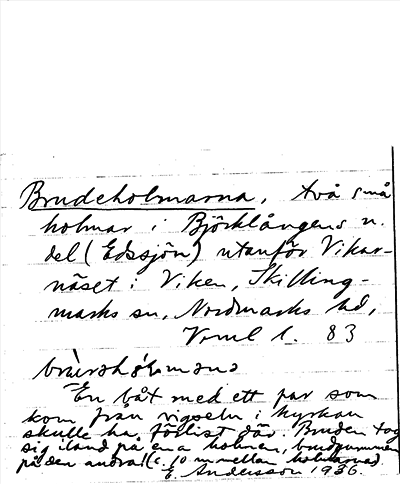 Brudeholmarna, två små
holmar i Björklångens n.
del (Edssjön) utanför Vikar-
näset i Viken, Skilling-
marks sn, Nordmarks hd,
Vrml l. 83
En båt med ett par som
kom från vigseln i kyrkan
skulle ha förlist där. Bruden tog
sig iland på ena holmen, brudgummen
på den andra! (c. 10 m mellan holmarna).
E. Andersson 1936.